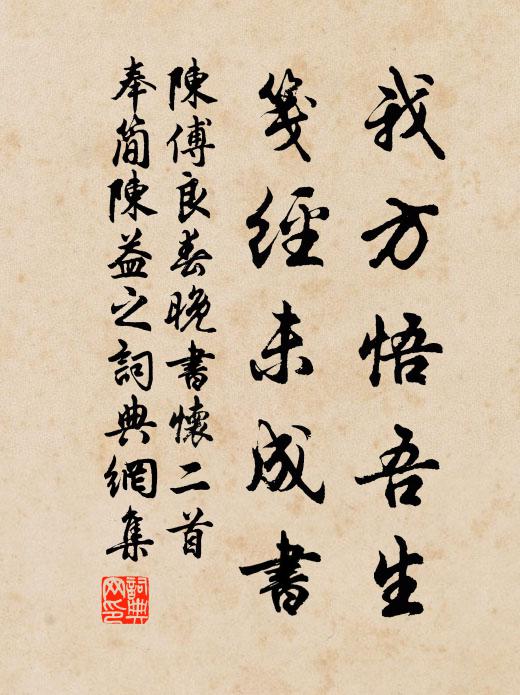 我方悟吾生
箋經未成書
陳傅良春晚書懷二首
奉簡陳益之詞典網集
詞典
网印